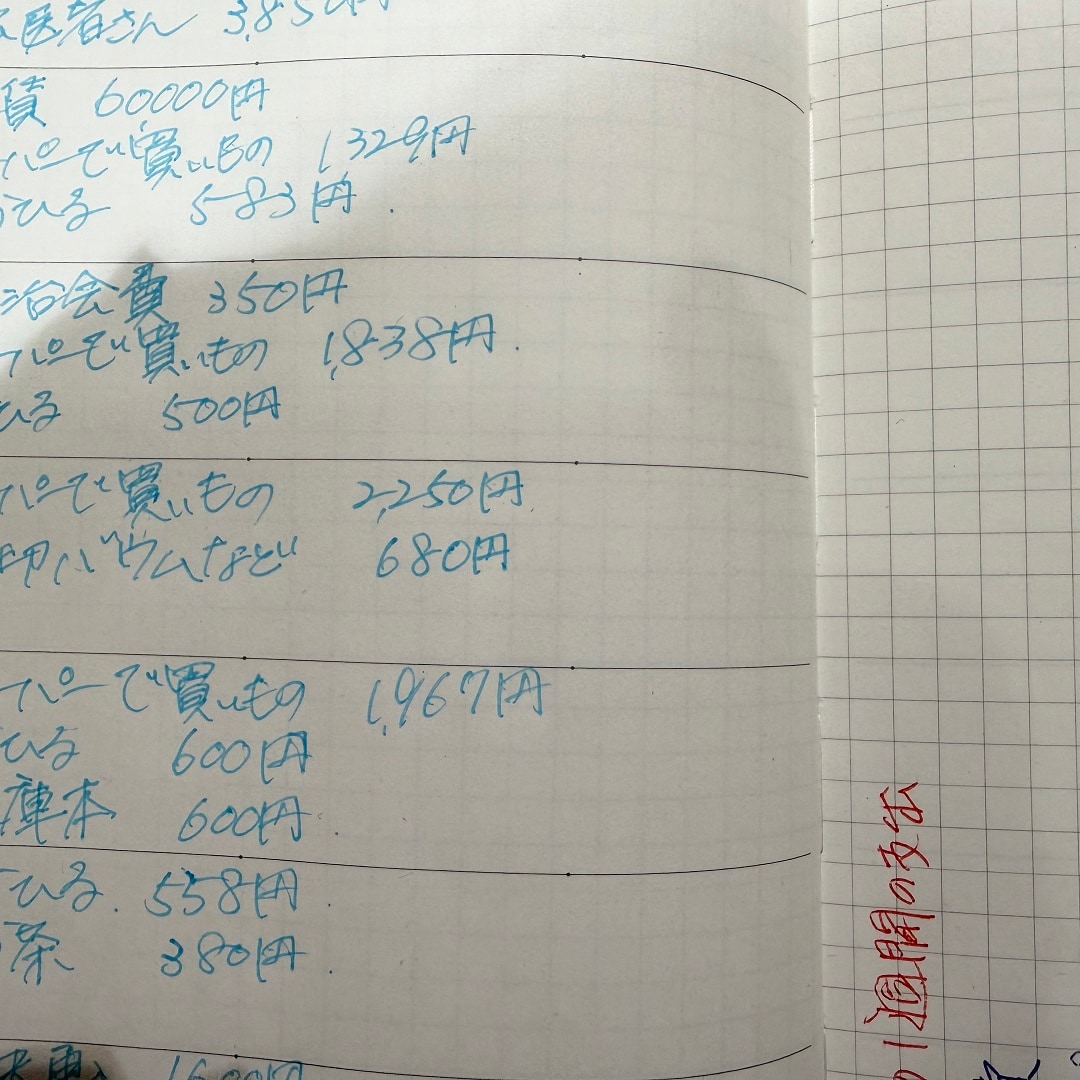 医者さん 3,850円
賃 60,000円
パーで買いもの 1,329円
ひる 583円.
治会費 350円
パーで買いもの 1,838円.
ひる 500円
パーで買いもの 2,250円
卵バウムなど 680円
パーで買いもの 1,967円
ひる 600円
庫本 600円.
ひる. 558円
茶 380円.
1週間の支出